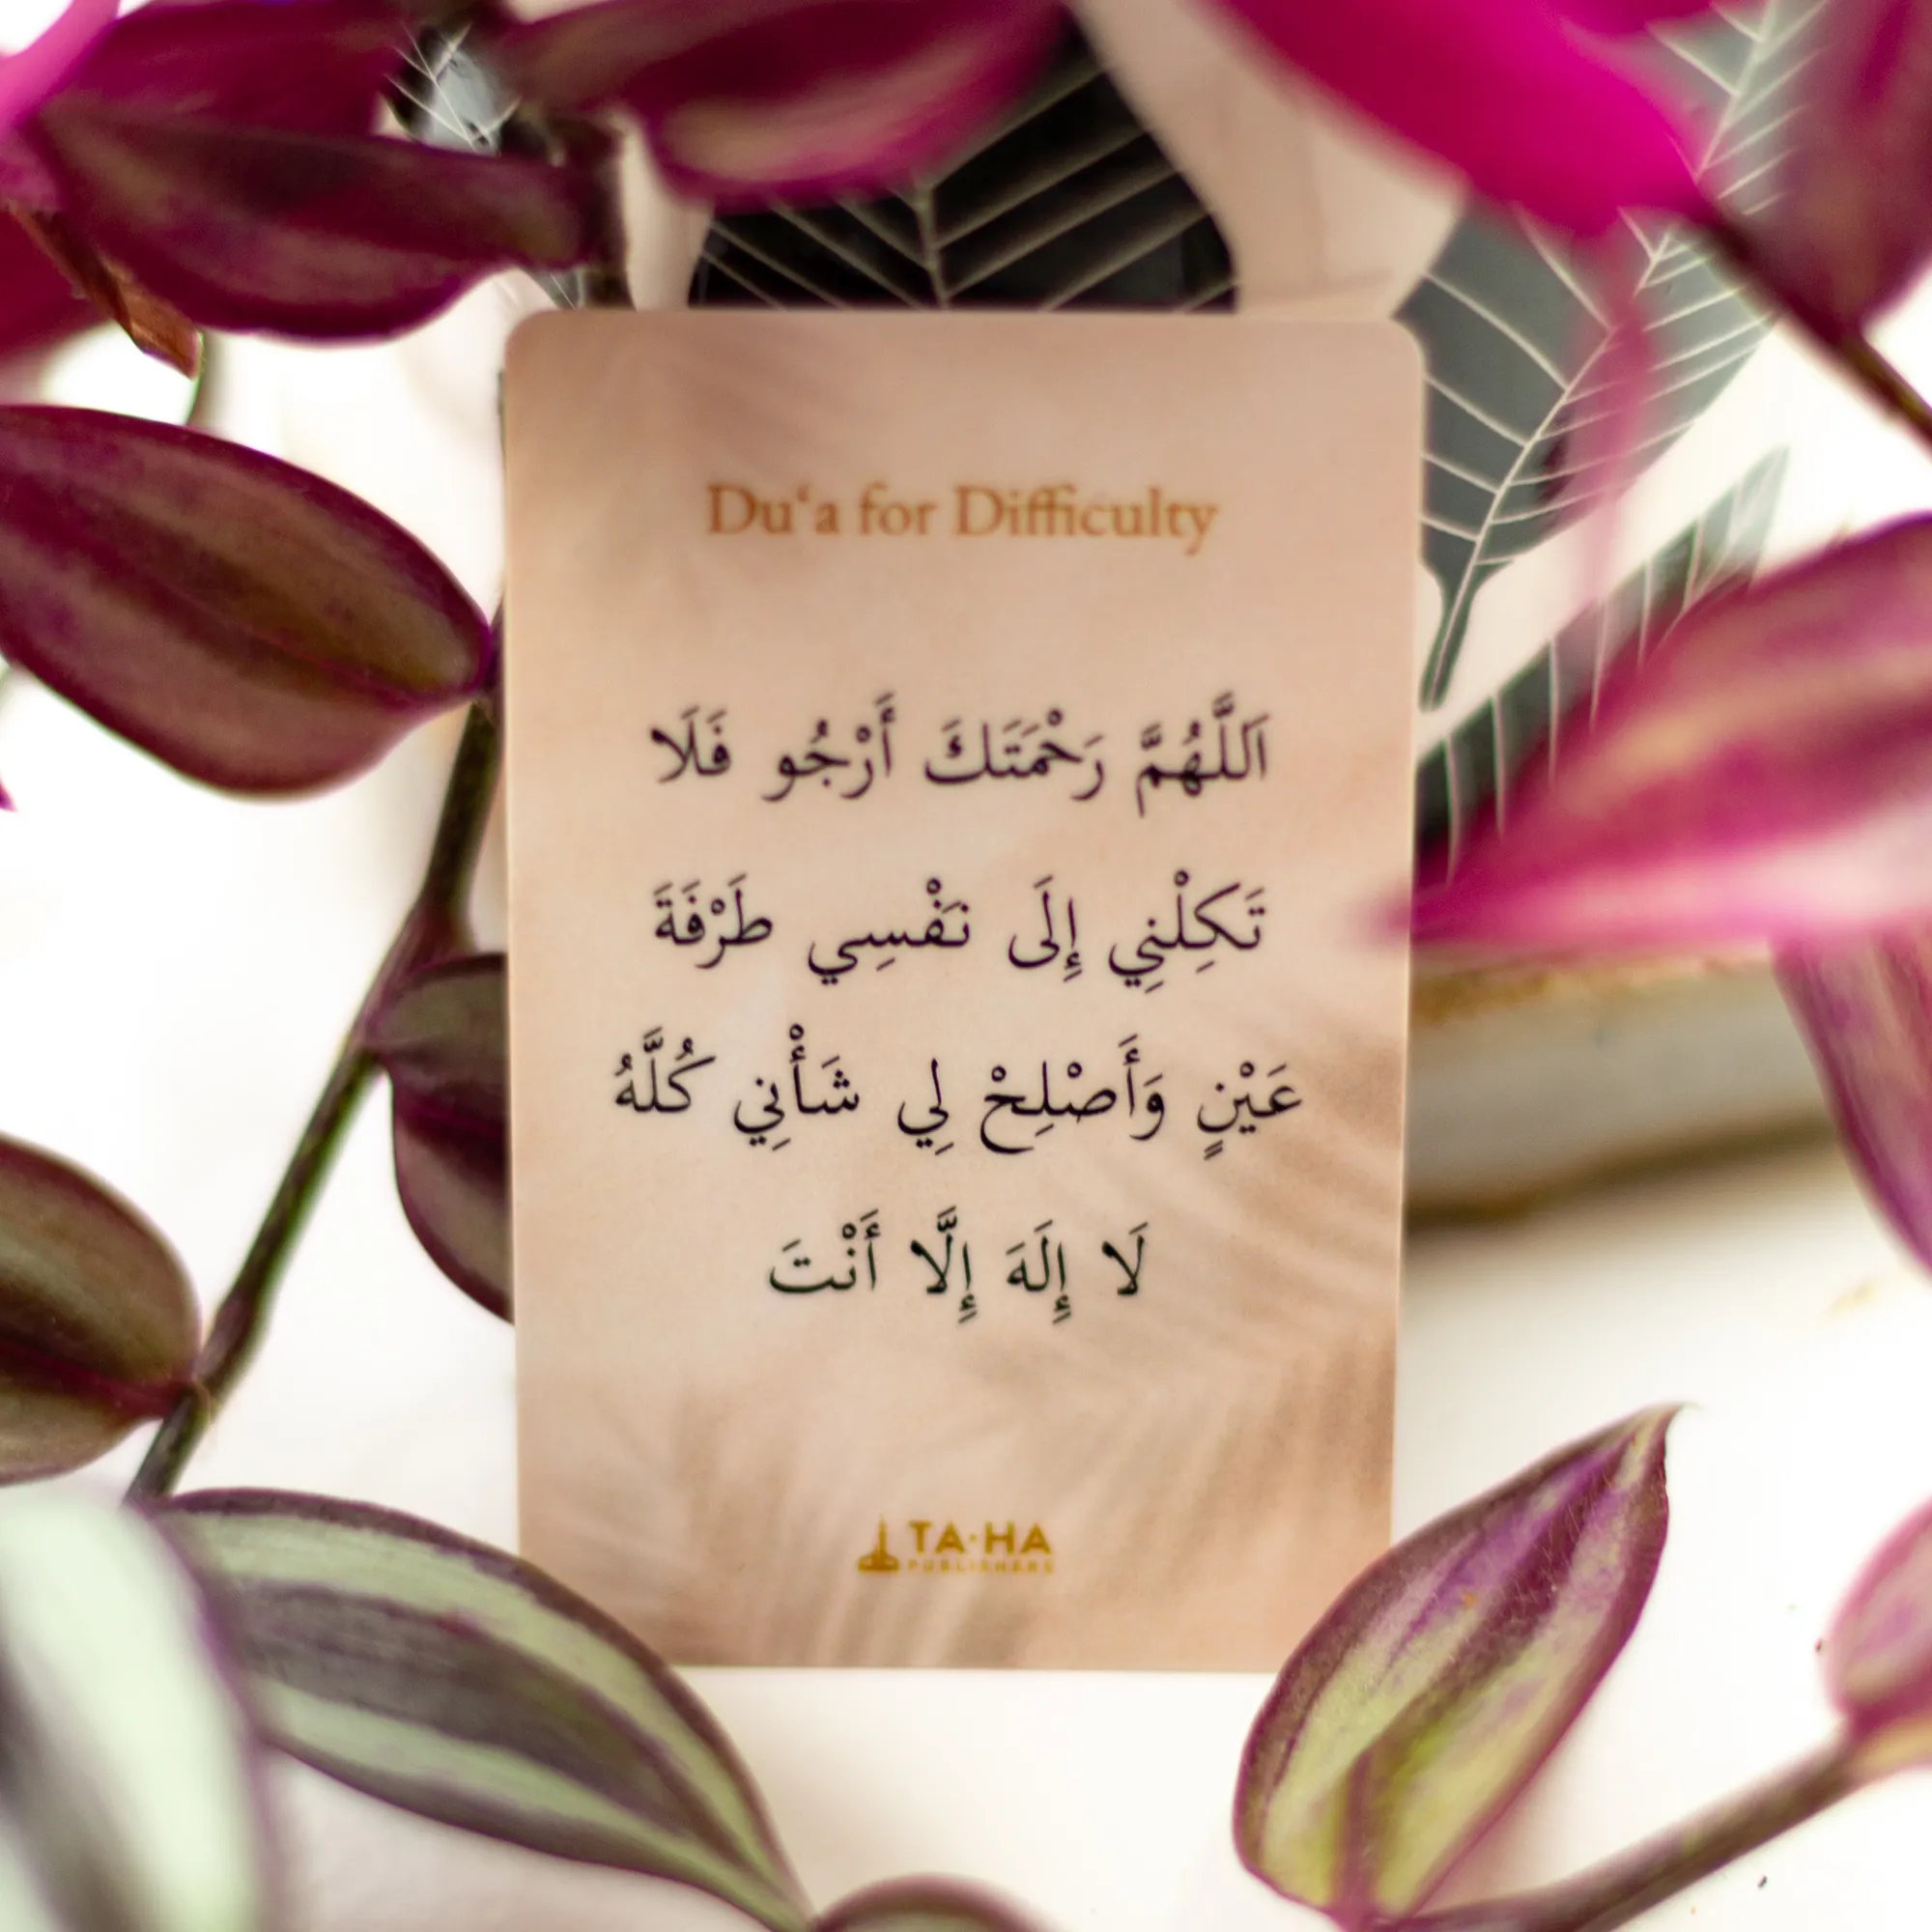 Du‘a for Difficulty
اَللَّهُمَّ رَحْمَتَكَ أَرْجُو فَلَا
تَكِلْنِي إِلَى نَفْسِي طَرْفَةَ
عَيْنٍ وَأَصْلِحْ لِي شَأْنِي كُلَّهُ
لَا إِلَهَ إِلَّا أَنْتَ
TA·HA
PUBLISHERS